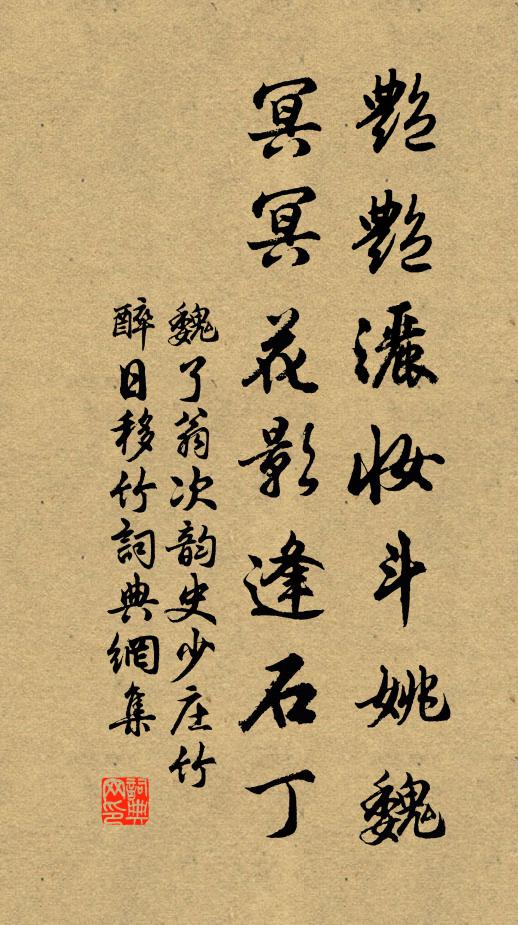 艷艷灑妝斗姚魏
冥冥花影逢石丁
魏了翁次韵史少庄竹
醉日移竹詞典網集
詞典
网印